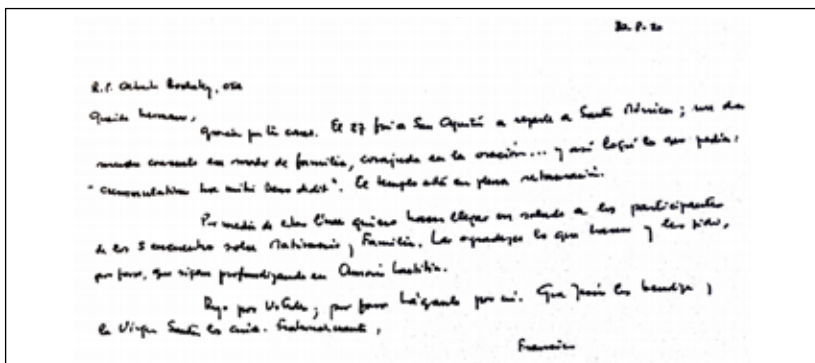 30.8.20
R.P. Bochatey, osa
Querido hermano,
Gracias por tu correo. El 27 fui a San Agustín a rezarle a Santa Mónica; me da
mucho consuelo en modo de familia, en la oración... y así logró lo que pedía:
"cumulatius hoc mihi Deus dedit". El templo está en plena restauración.
Por medio de estas líneas quiero hacer llegar un saludo a los participantes
de los 5 encuentros sobre Matrimonio y Familia. Les agradezco lo que hacen y les pido,
por favor, que sigan profundizando en Amoris Laetitia.
Rezo por Ustedes; por favor háganlo por mí. Que Jesús los bendiga y
la Virgen Santa los cuide. Fraternalmente,
Francisco